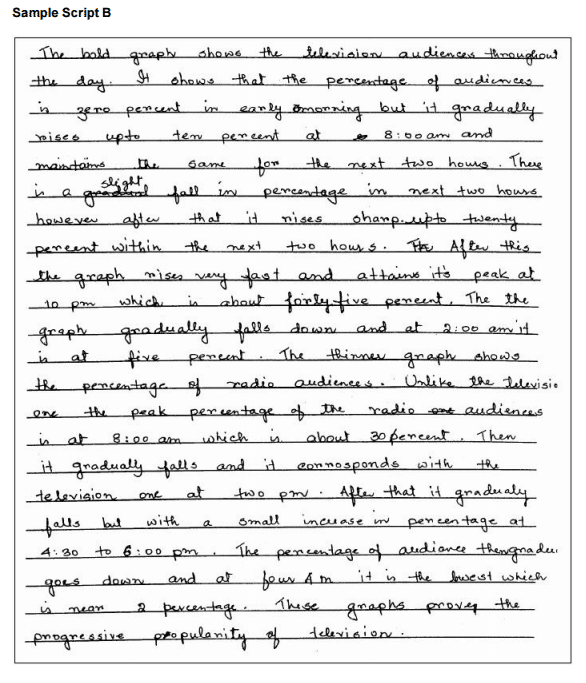 Sample Script B
The bold graph shows the television audiences throughout
the day. It shows that the percentage of audiences
is zero percent in early morning but it gradually
rises upto ten percent at 8:00 am and
maintains the same for the next two hours. There
is a slight fall in percentage in next two hours
however after that it rises sharp upto twenty
percent within the next two hours. After this
the graph rises very fast and attains it's peak at
10 pm which is about forty-five percent. The the
graph gradually falls down and at 2:00 am it
is at five percent. The thinner graph shows
the percentage of radio audiences. Unlike the televisio
one the peak percentage of the radio audiences
is at 8:00 am which is about 30 percent. Then
it gradually falls and it corrosponds with the
television one at two pm. After that it gradualy
falls but with a small increase in percentage at
4:30 to 6:00 pm. The percentage of audiance then
goes down and at four Am it is the lowest which
is near 2 percentage. These graphs proves the
progressive popularity of television.